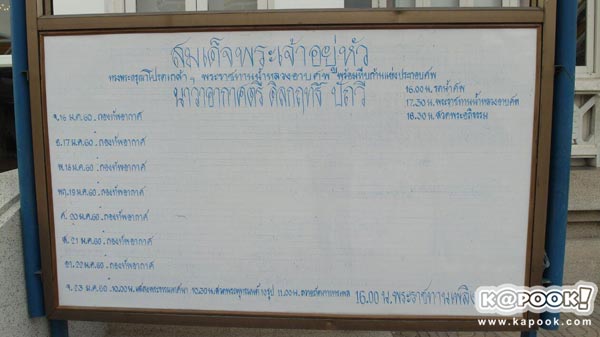 สมเด็จพระเจ้าอยู่หัว
ทรงพระกรุณาโปรดเกล้าฯ พระราชทานน้ำหลวงอาบศพ พร้อมหีบก้านแย่งประกอบศพ
นาวาอากาศตรี ดิลกฤทธิ์ ปัถวี
16.00 น. รดน้ำศพ
17.30 น. พระราชทานน้ำหลวงอาบศพ
18.30 น. สวดพระอภิธรรม
จ. 16 ม.ค. 60 : กองทัพอากาศ
อ. 17 ม.ค. 60 : กองทัพอากาศ
พ. 18 ม.ค. 60 : กองทัพอากาศ
พฤ. 19 ม.ค. 60 : กองทัพอากาศ
ศ. 20 ม.ค. 60 : กองทัพอากาศ
ส. 21 ม.ค. 60 : กองทัพอากาศ
อา. 22 ม.ค. 60 : กองทัพอากาศ
จ. 23 ม.ค. 60 : 10.00 น. แสดงพระธรรมเทศนา 10.30 น. สวดพระพุทธมนต์ 10 รูป 11.00 น. ถวายภัตตาหารเพล 16.00 น. พระราชทานเพลิง
K@POOK!
www.kapook.com